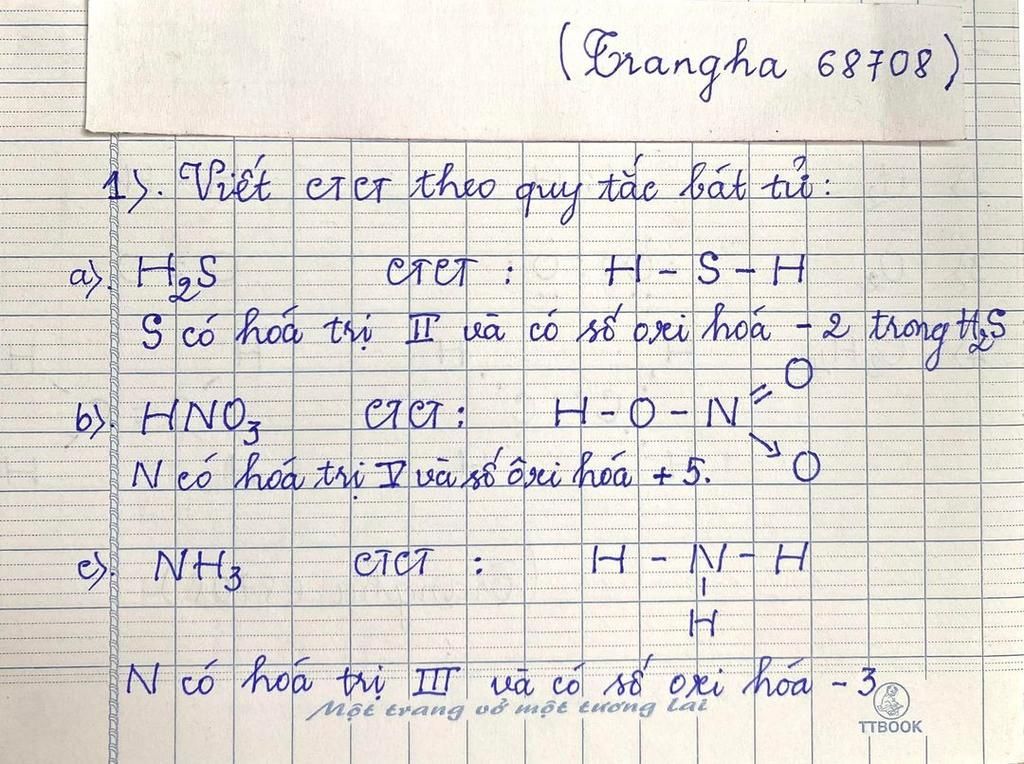 (Trangha 68708)
1). Viết CTCT theo quy tắc bát tử:
a). H₂S CTCT : H - S - H
S có hoá trị II và có số oxi hoá - 2 trong H₂S
O
b). HNO₃ CTCT : H - O - N
N có hoá trị V và số ôxi hoá + 5. O
c). NH₃ CTCT : H - N - H
H
N có hoá trị III và có số oxi hóa - 3
Một trang vở một tương lai
TTBOOK